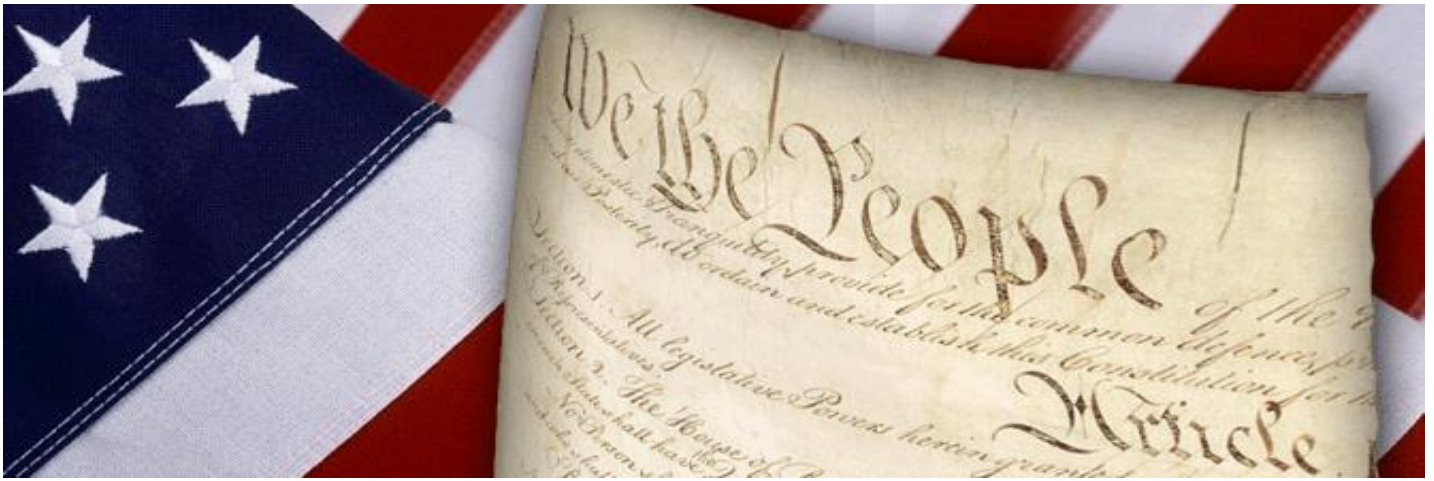 We the People
of the
domestic Tranquility, provide for the common defence,
Posterity, do ordain and establish this Constitution for
Article.
Section. 1. All legislative Powers herein granted
of Representatives.
Section. 2. The House of
State shall have the
No Person